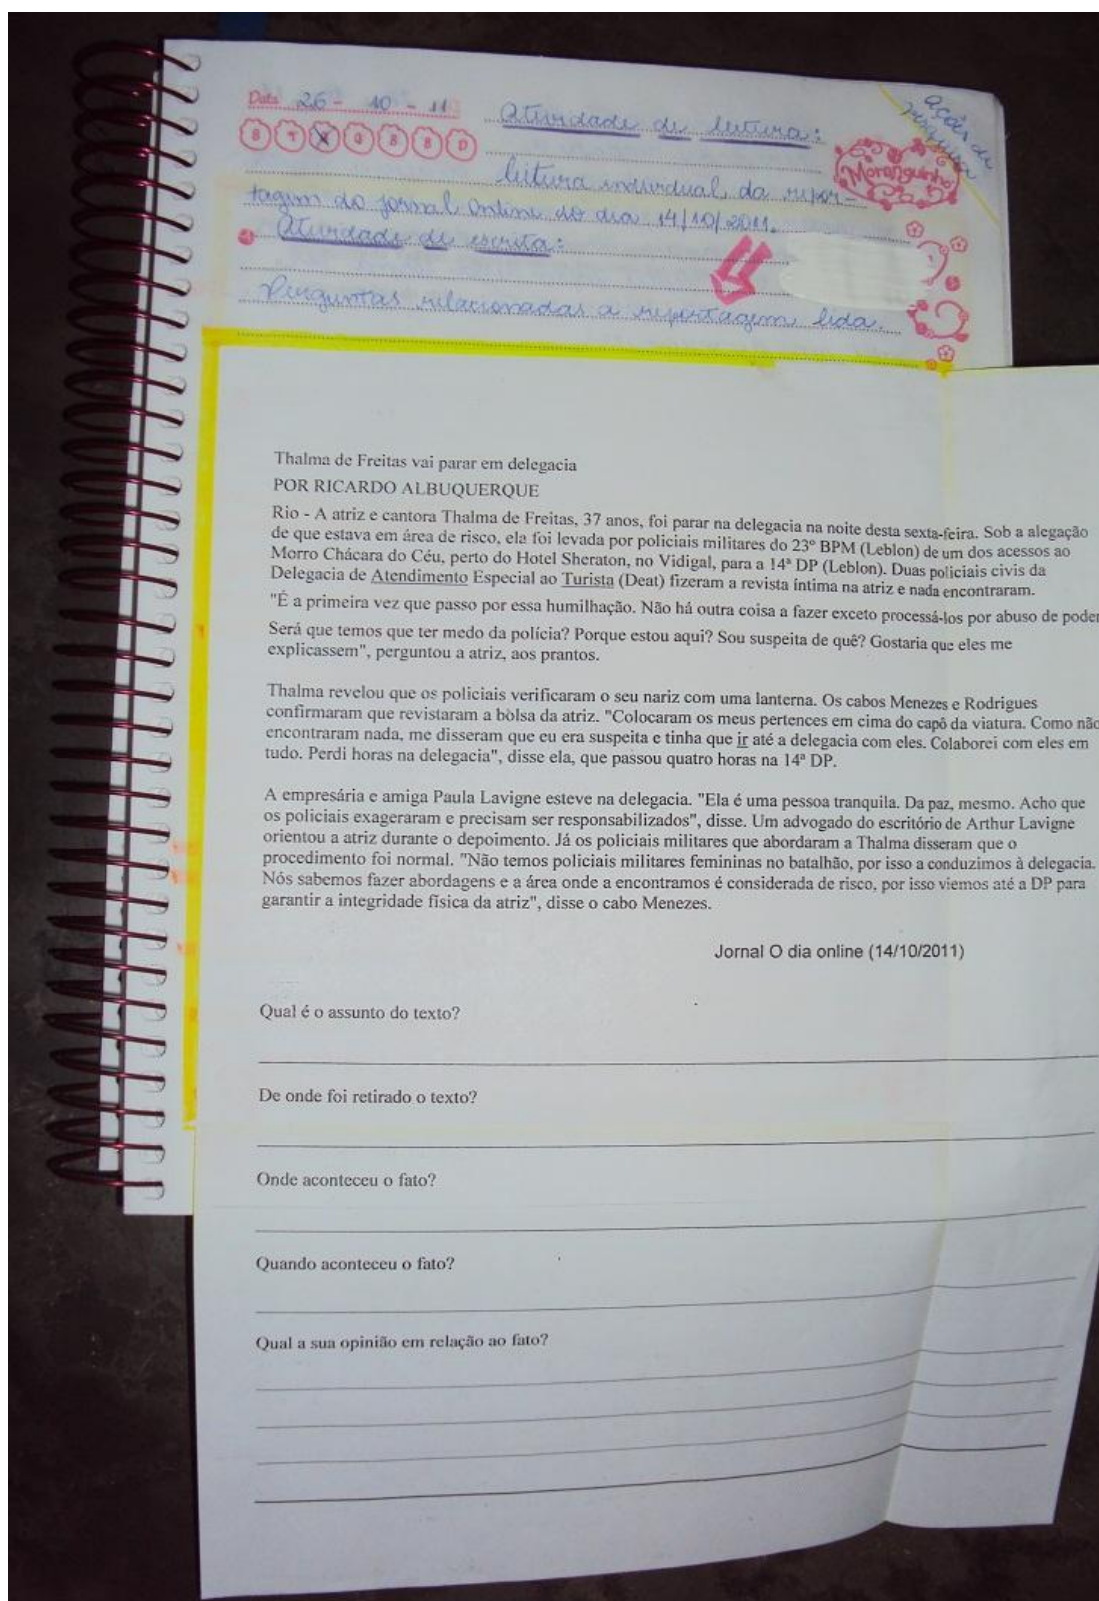 Data 26 - 10 - 11
S T Q Q S S D
Atividade de leitura:
Ações de
Moranguinho
leitura individual, da repor-
tagem do jornal Online do dia 14/10/2011.
Atividade de escrita:
Perguntas relacionadas a reportagem lida.
Thalma de Freitas vai parar em delegacia
POR RICARDO ALBUQUERQUE
Rio - A atriz e cantora Thalma de Freitas, 37 anos, foi parar na delegacia na noite desta sexta-feira. Sob a alegação
de que estava em área de risco, ela foi levada por policiais militares do 23º BPM (Leblon) de um dos acessos ao
Morro Chácara do Céu, perto do Hotel Sheraton, no Vidigal, para a 14ª DP (Leblon). Duas policiais civis da
Delegacia de Atendimento Especial ao Turista (Deat) fizeram a revista íntima na atriz e nada encontraram.
"É a primeira vez que passo por essa humilhação. Não há outra coisa a fazer exceto processá-los por abuso de poder
Será que temos que ter medo da polícia? Porque estou aqui? Sou suspeita de quê? Gostaria que eles me
explicassem", perguntou a atriz, aos prantos.
Thalma revelou que os policiais verificaram o seu nariz com uma lanterna. Os cabos Menezes e Rodrigues
confirmaram que revistaram a bolsa da atriz. "Colocaram os meus pertences em cima do capô da viatura. Como não
encontraram nada, me disseram que eu era suspeita e tinha que ir até a delegacia com eles. Colaborei com eles em
tudo. Perdi horas na delegacia", disse ela, que passou quatro horas na 14ª DP.
A empresária e amiga Paula Lavigne esteve na delegacia. "Ela é uma pessoa tranquila. Da paz, mesmo. Acho que
os policiais exageraram e precisam ser responsabilizados", disse. Um advogado do escritório de Arthur Lavigne
orientou a atriz durante o depoimento. Já os policiais militares que abordaram a Thalma disseram que o
procedimento foi normal. "Não temos policiais militares femininas no batalhão, por isso a conduzimos à delegacia.
Nós sabemos fazer abordagens e a área onde a encontramos é considerada de risco, por isso viemos até a DP para
garantir a integridade física da atriz", disse o cabo Menezes.
Jornal O dia online (14/10/2011)
Qual é o assunto do texto?
De onde foi retirado o texto?
Onde aconteceu o fato?
Quando aconteceu o fato?
Qual a sua opinião em relação ao fato?